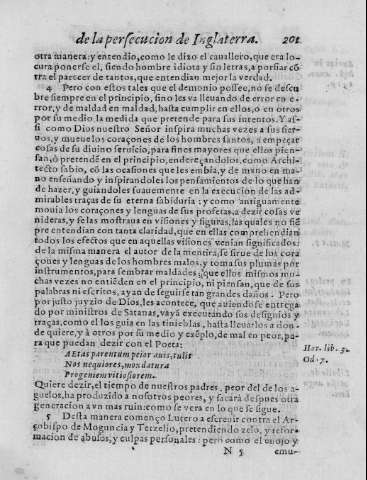 de la persecucion de Inglaterra. 201
otra manera: y entendio, como le dixo el cavallero, que era lo-
cura ponerse el, siendo hombre idiota y sin letras, a porfiar cõ
tra el parecer de tantos, que entendian mejor la verdad.
4 Pero con estos tales que el demonio possee, no se descu
bre siempre en el principio, sino les va lleuando de error en e-
rror, y de maldad en maldad, hasta cumplir en ellos, o en otros
por su medio la medida que pretende para sus intentos. Y as-
si como Dios nuestro Señor inspira muchas vezes a sus sier-
uos, y mueuelos coraçones de los hombres santos, a empeçar
cosas de su diuino seruicio, para fines mayores que ellos pien-
san, ò pretendẽ en el principio, endereçandolos, como Archi-
tecto sabio, cõ las ocasiones que les embia, y de mano en ma-
no enseñando y inspirandoles los pensamientos de lo que han
de hazer, y guiandoles suauemente en la execucion de las ad-
mirables traças de su eterna sabiduria: y como antiguamente
mouia los coraçones y lenguas de sus profetas, a dezir cosas ve
nideras, y se las mostraua en visiones y figuras, las quales no siẽ
pre entendian con tanta claridad, que en ellas comprehendian
todos los efectos que en aquellas visiones venian significados:
de la misma manera el autor de la mentira, se sirue de los cora
çones y lenguas de los hombres malos, y toma sus plumas por
instrumentos, para sembrar maldades, que ellos mismos mu-
chas vezes no entiẽden en el principio, ni piensan, que de sus
palabras ni escritos, ayan de seguirse tan grandes daños. Pero
por justo juyzio de Dios, les acontece, que auiendose entrega-
do por ministros de Satanas, vaya executando sus designios y
traças, como el los guia en las tinieblas, hasta lleuarlos a don-
de quiere, y à otros por su medio y exẽplo, de mal en peor, pa-
ra que puedan dezir con el Poeta:
Hor. lib. 3.
Od. 7.
Aetas parentum peior auis, tulit
Nos nequiores, mox datura
Progeniem vitiosorem.
Quiere dezir, el tiempo de nuestros padres, peor del de los a-
guelos, ha produzido a nosotros peores, y sacarà despues otra
generacion aun mas ruin: como se vera en lo que se sigue.
5 Desta manera començo Lutero a escreuir contra el Ar-
çobispo de Moguncia y Terzelio, pretendiendo zelo, y refor-
macion de abusos, y culpas personales: pero como el enojo y
N 5 emu-